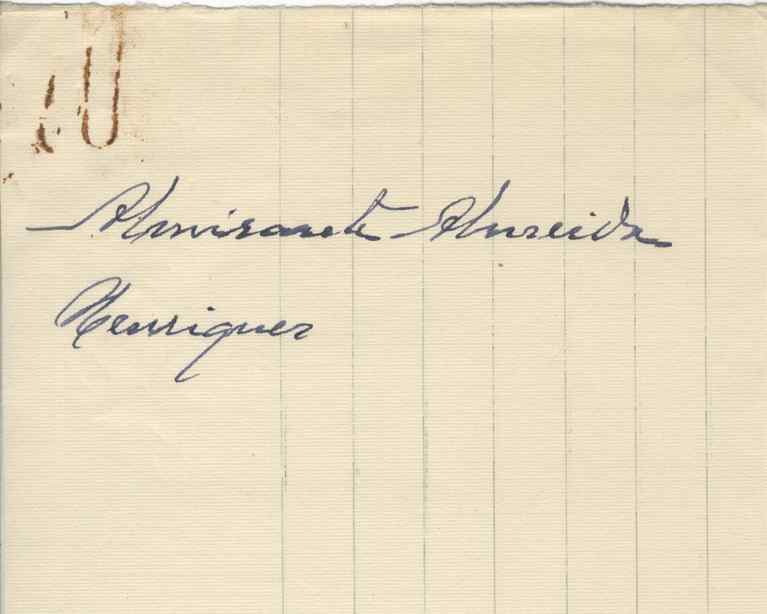 Almirante Almeida
Henriques